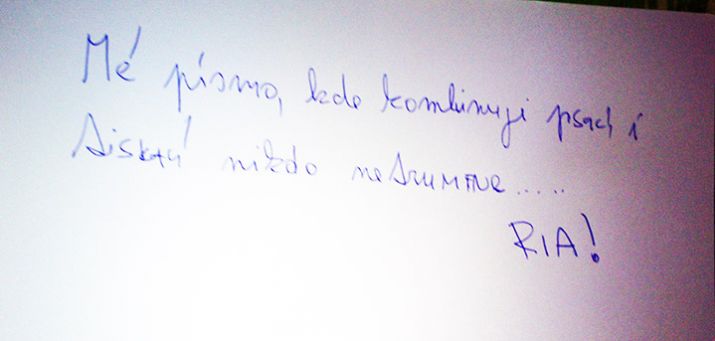 Mé písmo, kde kombinuji psací i
tiskací nikdo nerozumíne.....
RIA!